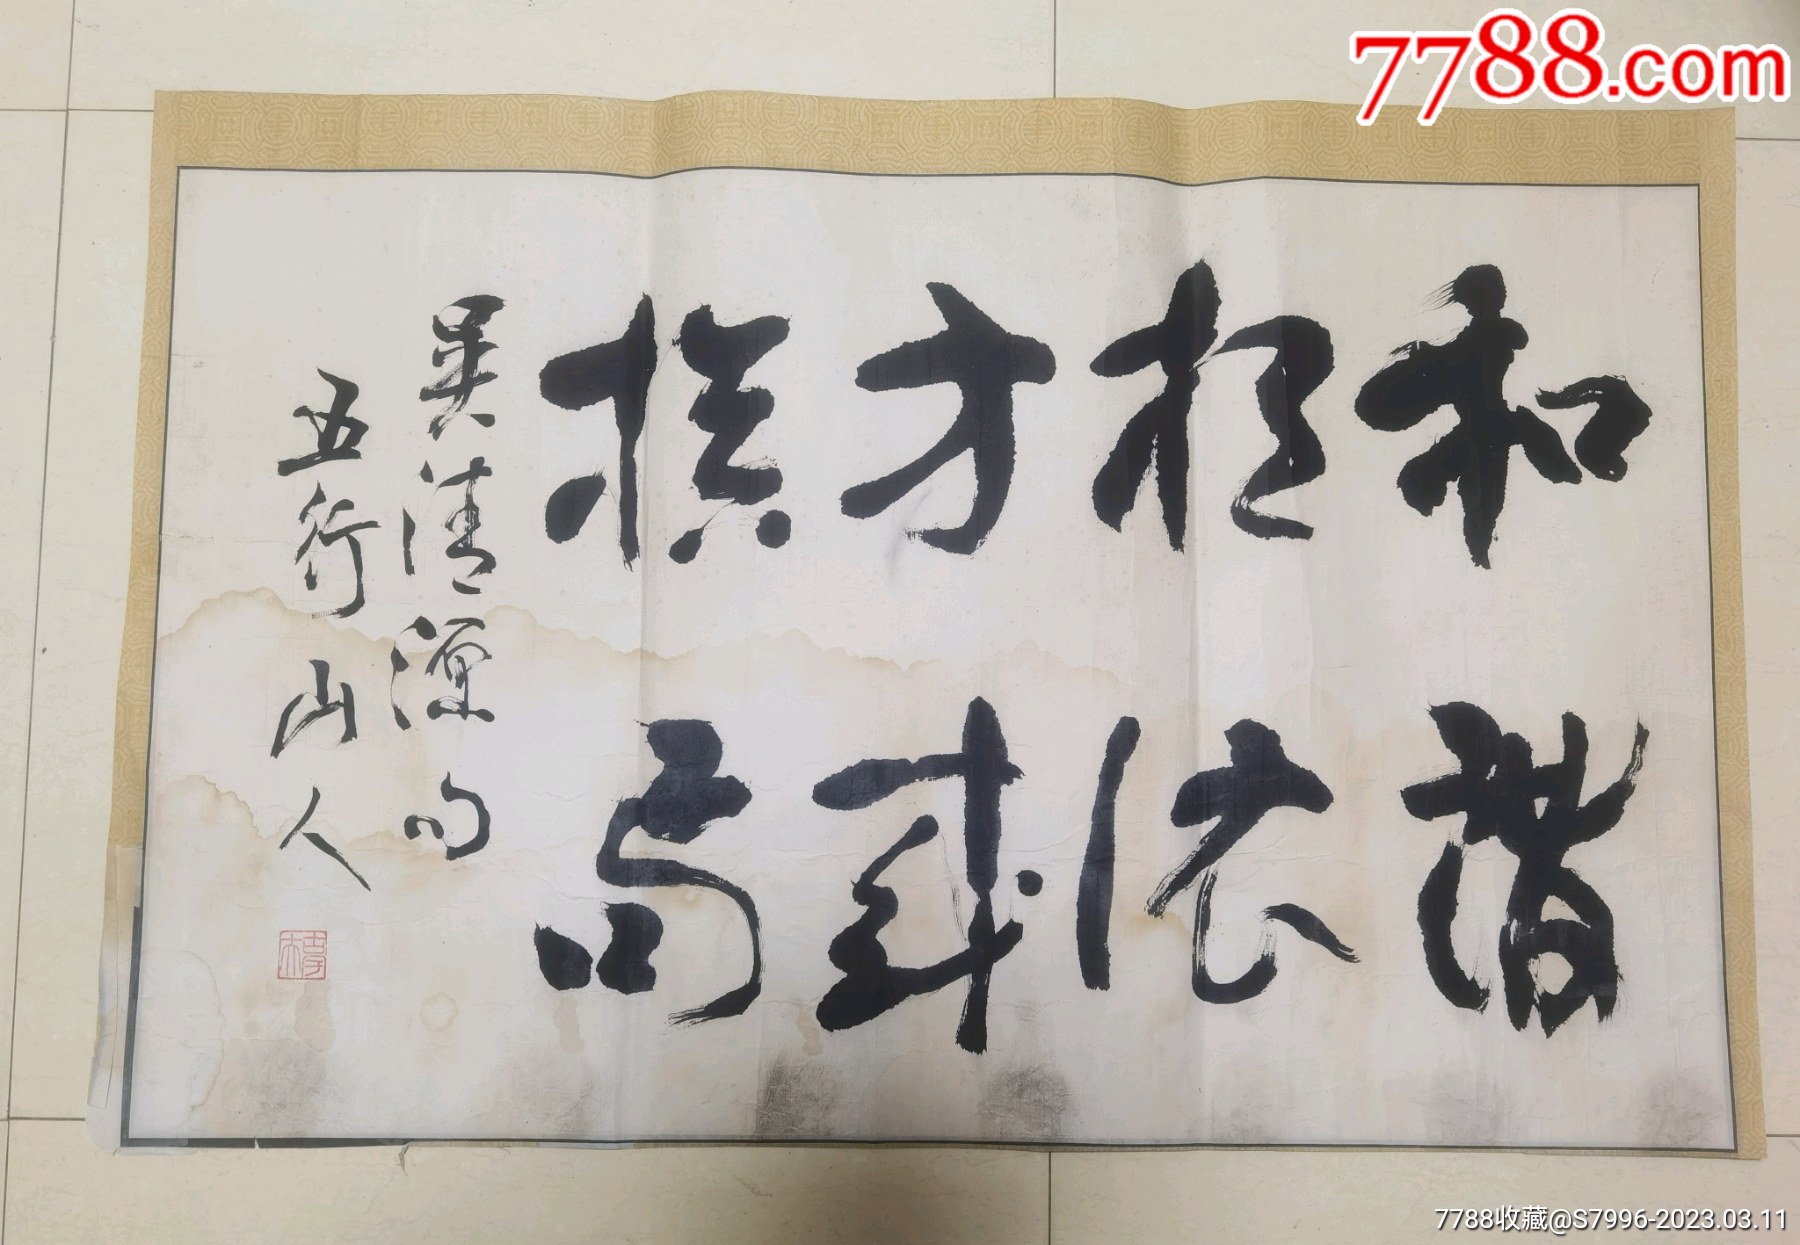 7788.com
和諧
相依
方成
棋局
吳清源句
五行山人
7788收藏@S7996-2023.03.11